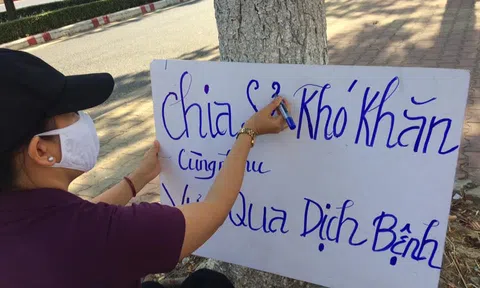 Chia Sẻ Khó Khăn
Cùng
Qua Dịch Bệnh